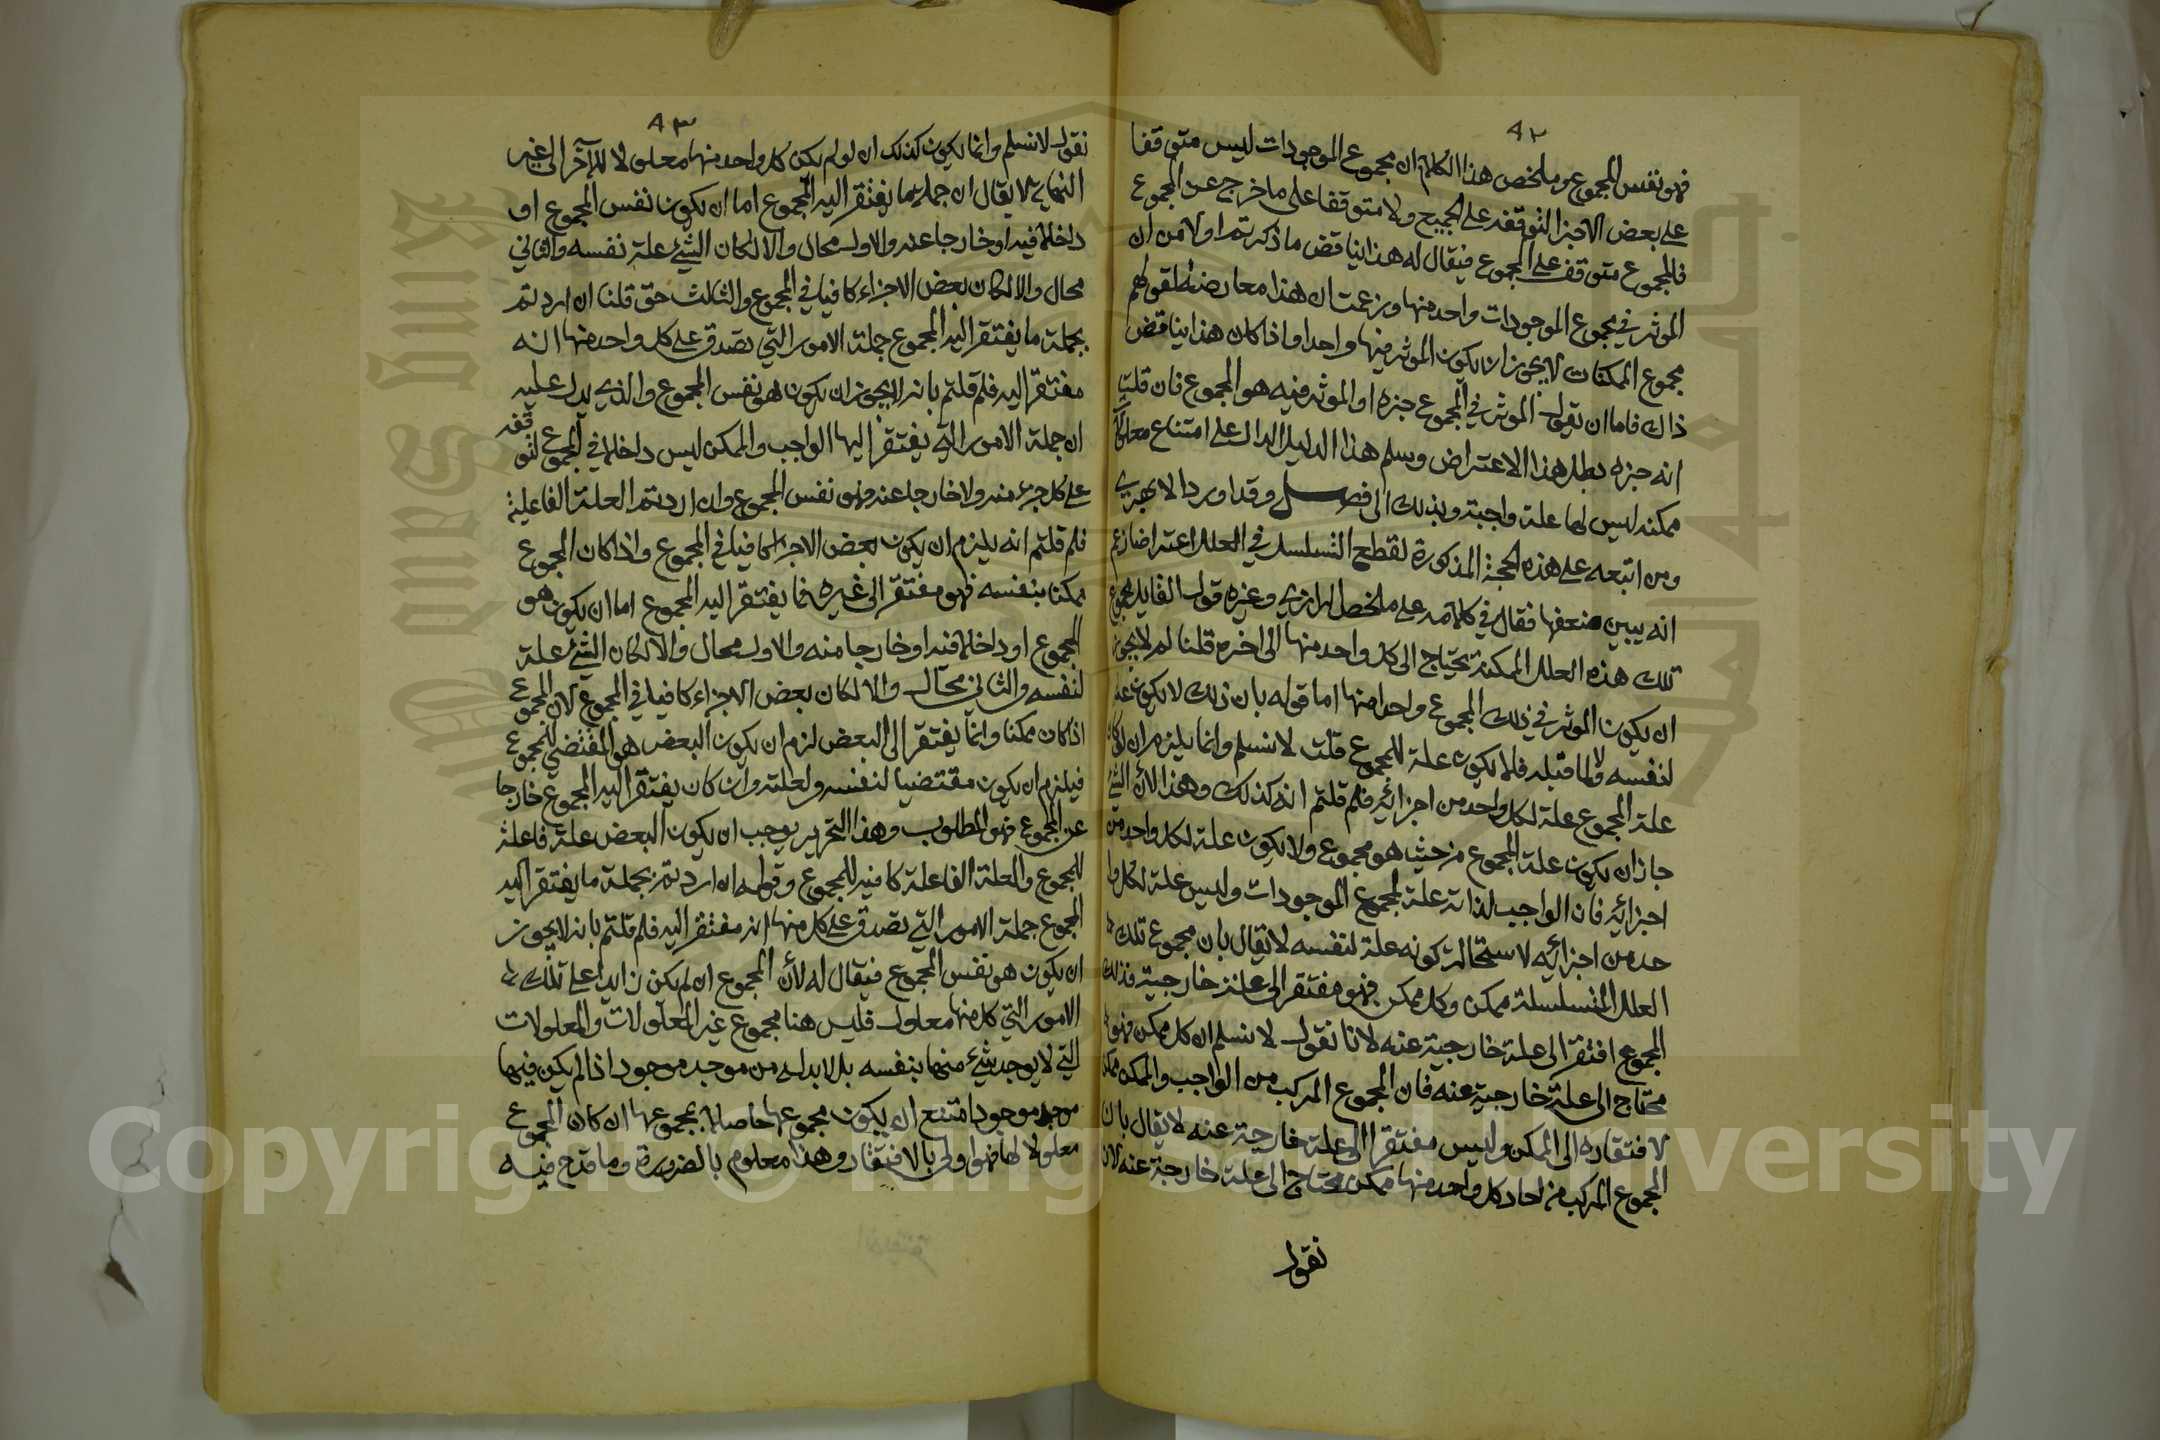 ٤٢
فهو نفس المجموع وملخص هذا الكلام ان مجموع الموجودات ليس متوقفا
على بعض الاجزا لتوقفه على الجميع ولا متوقفا على ما خرج عن المجموع
فالمجموع متوقف على المجموع فيقال له هذا يناقض ما ذكرتم اولا من ان
الموثر في مجموع الموجودات واحد منها وزعمت ان هذا معارضة لقولهم
مجموع الممكنات لا يجوز ان يكون الموثر فيها واحدا واذا كان هذا يناقض
ذاك فاما ان تقول الموثر في المجموع جزه او الموثر فيه هو المجموع فان قلت
انه جزه بطل هذا الاعتراض وسلم هذا الدليل الدال على امتناع معلولات
ممكنه ليس لها علة واجبة وبذلك الى فصل وقد اورد الابهري
ومن اتبعه على هذه الحجة المذكورة لقطع التسلسل في العلل اعتراضا زعم
انه يبين ضعفها فقال في كلامه على ملخص الرازي وغيره قول القايل مجموع
تلك هذه العلل الممكنة يحتاج الى كل واحد منها الى اخره قلنا لم لا يجوز
ان يكون الموثر في ذلك المجموع واحدا منها اما قوله بان ذلك لا يكون علة
لنفسه ولا لما قبله فلا يكون علة للمجموع قلت لا نسلم وانما يلزم ان لو كان
علة المجموع علة لكل واحد من اجزائه فلم قلتم انه كذلك وهذا لأن الشي
جاز ان يكون علة المجموع من حيث هو مجموع ولا يكون علة لكل واحد من
اجزائه فان الواجب لذاته علة لمجموع الموجودات وليس علة لكل وا
حد من اجزائه لاستحالة كونه علة لنفسه لا يقال بان مجموع تلك
العلل المتسلسلة ممكن وكل ممكن فهو مفتقر الى علة خارجية فذلك
المجموع افتقر الى علة خارجية عنه لانا نقول لا نسلم ان كل ممكن فهو
محتاج الى علة خارجية عنه فان المجموع المركب من الواجب والممكن ممكن
لافتقاره الى الممكن وليس مفتقرا الى علة خارجة عنه لا يقال بان
المجموع المركب من احاد كل واحد منها ممكن محتاج الى علة خارجة عنه لانا
نقول
٤٣
نقول لا نسلم وانما يكون كذلك ان لو لم يكن كل واحد منها معلولا للآخر الى غير
النهاية لا يقال ان جملة ما يفتقر اليه المجموع اما ان يكون نفس المجموع او
داخلا فيه او خارجا عنه والاول محال والا لكان الشيء علة نفسه والثاني
محال والا لكان بعض الاجزاء كافيا في المجموع والثالث حق قلنا ان اردتم
بجملة ما يفتقر اليه المجموع جملة الامور التي تصدق على كل واحد منها انه
مفتقر اليه فلم قلتم بانه لا يجوز ان يكون هو نفس المجموع والذي يدل عليه
ان جملة الامور التي يفتقر اليها الواجب والممكن ليس داخلا في المجموع لتوقفه
على كل جزء منه ولا خارجا عنه فهو نفس المجموع وان اردتم العلة الفاعلية
فلم قلتم انه يلزم ان يكون بعض الاجزاء كافيا في المجموع واذا كان المجموع
ممكنا بنفسه فهو مفتقر الى غيره فما يفتقر اليه المجموع اما ان يكون هو
المجموع او داخلا فيه او خارجا منه والاول محال والا لكان الشيء علة
لنفسه والثاني محال والا لكان بعض الاجزاء كافيا في المجموع لان المجموع
اذا كان ممكنا وانما يفتقر الى البعض لزم ان يكون البعض هو المقتضي للمجموع
فيلزم ان يكون مقتضيا لنفسه ولعلته وان كان يفتقر اليه المجموع خارجا
عن المجموع فهو المطلوب وهذا التحرير يوجب ان يكون البعض علة فاعلة
للمجموع والعلة الفاعلة كافية للمجموع وقوله ان اردتم بجملة ما يفتقر اليه
المجموع جملة الامور التي تصدق على كل منها انه مفتقر اليه فلم قلتم بانه لا يجوز
ان يكون هو نفس المجموع فيقال له لأن المجموع ان لم يكن زايدا على تلك
الامور التي كل منها معلول فليس هنا مجموع غير المعلولات والمعلولات
التي لا يوجد شيء منها بنفسه بل لا بد له من موجد موجود اذا لم يكن فيها
موجد موجود امتنع ان يكون مجموعها حاصلا بمجموعها ان كان المجموع
معلولا لها فهو اولى بالافتقار وهذا معلوم بالضرورة وما قدح فيه
Copyright © King Saud University
King Saud University